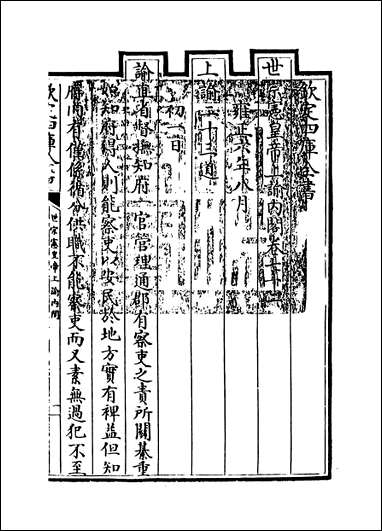 欽定四庫全書
世宗憲皇帝上諭內閣卷七十二
雍正六年八月
上諭二十二道
初一日
諭直省督撫知府一官管理通郡有察吏之責所關綦重
如知府得人則能察吏以安民於地方實有裨益但知
府內有僅係循分供職不能察吏而又素無過犯不至
欽定四庫全書
世宗憲皇帝上諭內閣